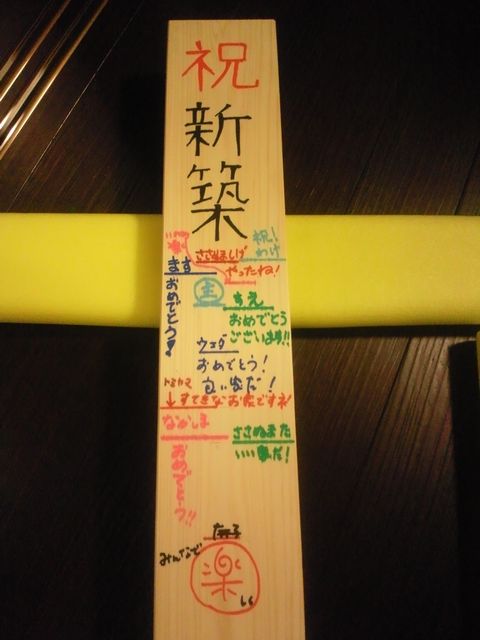 祝
新築
祝!
わけ
ます
おめでとう!
やったね!
圭
ちえ
おめでとう
ございます!!
ウエダ
おめでとう!
良い家だ!
トミヤマ
↓すてきなお家ですネ!
なかしま
おめでとう!!
ささぬまた
いい家だ!
みんなで
楽
しく